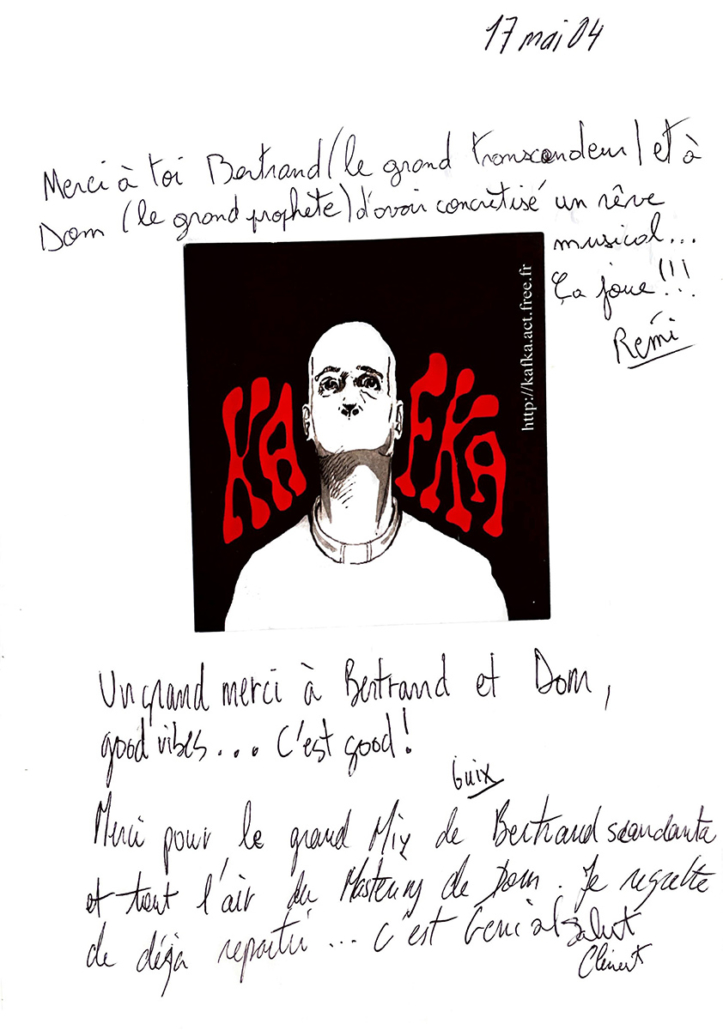 17 mai 04
Merci à toi Bertrand (le grand transcendeur) et à
Dom (le grand prophete) d'avoir concrétisé un rêve
musical...
Ça joue !!!
Rémi
http://kafka.act.free.fr
KAFKA
Un grand merci à Bertrand et Dom,
good vibes... C'est good !
Guix
Merci pour le grand Mix de Bertrand
et tout l'air du Mastering de Dom. Je regrette
de déjà repartir... C'est Genial Salut
Clément